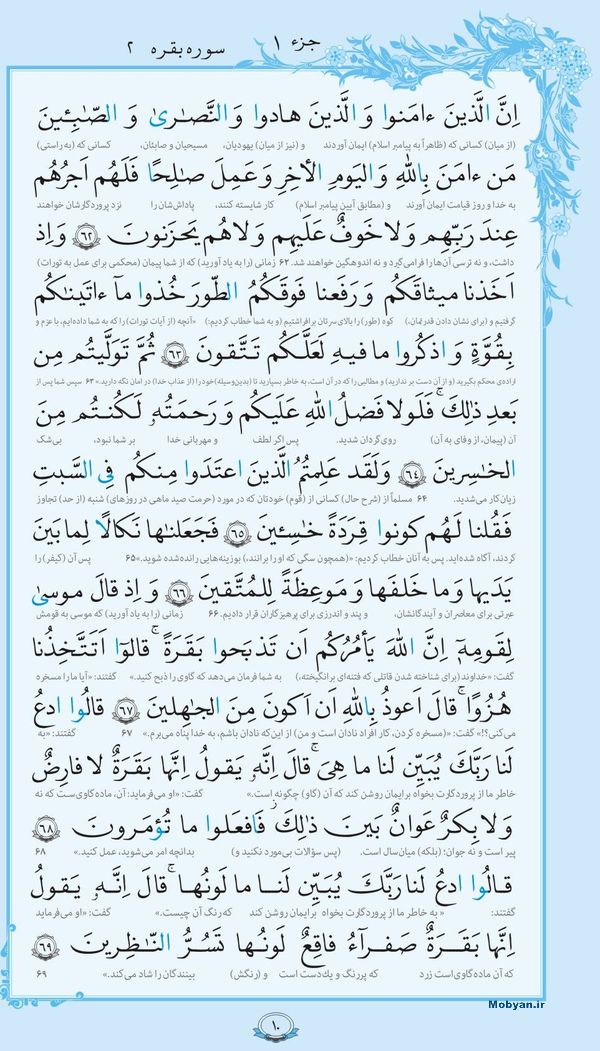 جزء ۱
سوره بقره ۲
اِنَّ الَّذینَ ءامَنوا وَ الَّذینَ هادوا وَ النَّصاریٰ وَ الصّابِـٔینَ
(از میان) کسانی که (ظاهراً به پیامبر اسلام) ایمان آوردند و (نیز از میان) یهودیان، مسیحیان و صابئان، کسانی که (به راستی)
مَن ءامَنَ بِاللهِ وَ الیَومِ الأخِرِ وَ عَمِلَ صالِحًا فَلَهُم اَجرُهُم
به خدا و روز قیامت ایمان آورند و (مطابق آیین پیامبر اسلام) کار شایسته کنند، پاداش‌شان را نزد پروردگارشان خواهند
عِندَ رَبِّهِم وَ لا خَوفٌ عَلَیهِم وَ لا هُم یَحزَنونَ ﴿٦٢﴾ وَ اِذ
داشت، و نه ترسی آن‌ها را فرامی‌گیرد و نه اندوهگین خواهند شد. ۶۲ زمانی (را به یاد آورید) که از شما پیمان (محکمی برای عمل به تورات)
اَخَذنا میثاقَکُم وَ رَفَعنا فَوقَکُمُ الطّورَ خُذوا مآ ءاتَیناکُم
گرفتیم و (برای نشان دادن قدرتمان،) کوه (طور) را بالای سرتان برافراشتیم (و به شما خطاب کردیم:) «آنچه (از آیات تورات) را که به شما داده‌ایم، با عزم و
بِقُوَّةٍ وَ اذکُروا ما فیهِ لَعَلَّکُم تَتَّقونَ ﴿٦٣﴾ ثُمَّ تَوَلَّیتُم مِن
اراده‌ی محکم بگیرید (و از آن دست بر ندارید) و مطالبی را که در آن است، به خاطر بسپارید تا (بدین‌وسیله) خود را (از عذاب خدا) در امان نگه دارید.» ۶۳ سپس شما پس از
بَعدِ ذٰلِکَ ۖ فَلَولا فَضلُ اللهِ عَلَیکُم وَ رَحمَتُهو لَکُنتُم مِنَ
آن (پیمان، از وفای به آن) روی‌گردان شدید. پس اگر لطف و مهربانی خدا بر شما نبود، بی‌شک
الخاسِرینَ ﴿٦٤﴾ وَ لَقَد عَلِمتُمُ الَّذینَ اعتَدَوا مِنکُم فِی السَّبتِ
زیان‌کار می‌شدید. ۶۴ مسلماً از (شرح حال) کسانی از (قوم) خودتان که در مورد (حرمت صید ماهی در روزهای) شنبه (از حد) تجاوز
فَقُلنا لَهُم کونوا قِرَدَةً خاسِـٔینَ ﴿٦٥﴾ فَجَعَلناها نَکالًا لِما بَینَ
کردند، آگاه شده‌اید. پس به آنان خطاب کردیم: «(همچون سگی که او را برانند،) بوزینه‌هایی رانده‌شده شوید.» ۶۵ پس آن (کیفر) را
یَدَیها وَ ما خَلفَها وَ مَوعِظَةً لِلمُتَّقینَ ﴿٦٦﴾ وَ اِذ قالَ موسیٰ
عبرتی برای معاصران و آیندگانشان، و پند و اندرزی برای پرهیزگاران قرار دادیم. ۶۶ زمانی (را به یاد آورید) که موسی به قومش
لِقَومِهٓ اِنَّ اللهَ یَأمُرُکُم اَن تَذبَحوا بَقَرَةً ۖ قالوٓا اَتَتَّخِذُنا
گفت: «خداوند (برای شناخته شدن قاتلی که فتنه‌ای برانگیخته،) به شما فرمان می‌دهد که گاوی را ذبح کنید.» گفتند: «آیا ما را مسخره
هُزُوًا ۖ قالَ اَعوذُ بِاللهِ اَن اَکونَ مِنَ الجاهِلینَ ﴿٦٧﴾ قالُوا ادعُ
می‌کنی؟!» گفت: «(مسخره کردن، کار افراد نادان است و من) از این‌که نادان باشم، به خدا پناه می‌برم.» ۶۷ گفتند: «به
لَنا رَبَّکَ یُبَیِّن لَنا ما هِیَ ۚ قالَ اِنَّهو یَقولُ اِنَّها بَقَرَةٌ لا فارِضٌ
خاطر ما از پروردگارت بخواه برایمان روشن کند که آن (گاو) چگونه است.» گفت: «او می‌فرماید: آن، ماده‌گاوی‌ست که نه
وَ لا بِکرٌ عَوانٌ بَینَ ذٰلِکَ ۖ فَافعَلوا ما تُؤمَرونَ ﴿٦٨﴾
پیر است و نه جوان؛ (بلکه) میان‌سال است. (پس سؤالات بی‌مورد نکنید و) بدانچه امر می‌شوید، عمل کنید.» ۶۸
قالُوا ادعُ لَنا رَبَّکَ یُبَیِّن لَنا ما لَونُها ۚ قالَ اِنَّهو یَقولُ
گفتند: «به خاطر ما از پروردگارت بخواه برایمان روشن کند که رنگ آن چیست.» گفت: «او می‌فرماید
اِنَّها بَقَرَةٌ صَفرآءُ فاقِعٌ لَونُها تَسُرُّ النّاظِرینَ ﴿٦٩﴾
که آن ماده‌گاوی‌است زرد که پررنگ و یک‌دست است و (رنگش) بینندگان را شاد می‌کند.» ۶۹
Mobyan.ir
۱۰